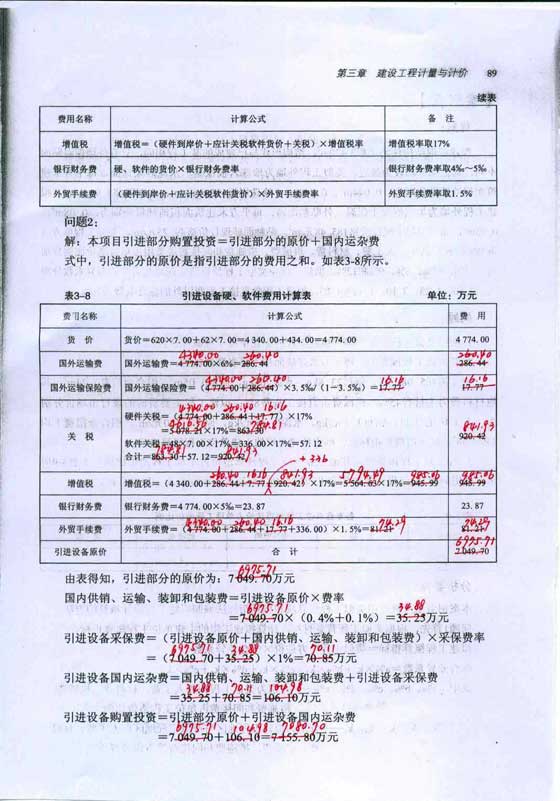 第三章 建设工程计量与计价 89
续表
费用名称 计算公式 备 注
增值税 增值税=(硬件到岸价+应计关税软件货价+关税)×增值税率 增值税率取17%
银行财务费 硬、软件的货价×银行财务费率 银行财务费率取4‰~5‰
外贸手续费 (硬件到岸价+应计关税软件货价)×外贸手续费率 外贸手续费率取1.5%
问题2:
解:本项目引进部分购置投资=引进部分的原价+国内运杂费
式中,引进部分的原价是指引进部分的费用之和。如表3-8所示。
表3-8 引进设备硬、软件费用计算表 单位:万元
费用名称 计算公式 费 用
货 价 货价=620×7.00+62×7.00=4 340.00+434.00=4 774.00 4 774.00
4340.00 260.40 260.40
国外运输费 国外运输费=4 774.00×6%=286.44 286.44
4340.00 260.40 16.16 16.16
国外运输保险费 国外运输保险费=(4 774.00+286.44)×3.5‰/(1-3.5‰)=17.77 17.77
4340.00 260.40 16.16
硬件关税=(4 774.00+286.44+17.77)×17%
4616.56 784.81
=5 078.21×17%=863.30
关 税 841.93 920.42
软件关税=48×7.00×17%=336.00×17%=57.12
784.81 841.93
合计=863.30+57.12=920.42
+336
260.40 16.16 841.93 5794.49 985.06 985.06
增值税 增值税=(4 340.00+286.44+17.77+920.42)×17%=5 564.63×17%=945.99 945.99
银行财务费 银行财务费=4 774.00×5‰=23.87 23.87
4340.00 260.40 16.16 74.29 74.29
外贸手续费 外贸手续费=(4 774.00+286.44+17.77+336.00)×1.5%=81.21 81.21
6975.71
引进设备原价 合 计 7 049.70
6975.71
由表得知,引进部分的原价为:7 049.70万元
国内供销、运输、装卸和包装费=引进设备原价×费率
6975.71 34.88
=7 049.70×(0.4%+0.1%)=35.25万元
引进设备采保费=(引进设备原价+国内供销、运输、装卸和包装费)×采保费率
6975.71 34.88 70.11
=(7 049.70+35.25)×1%=70.85万元
引进设备国内运杂费=国内供销、运输、装卸和包装费+引进设备采保费
34.88 70.11 104.98
=35.25+70.85=106.10万元
引进设备购置投资=引进部分原价+引进设备国内运杂费
6975.71 104.98 7080.70
=7 049.70+106.10=7 155.80万元